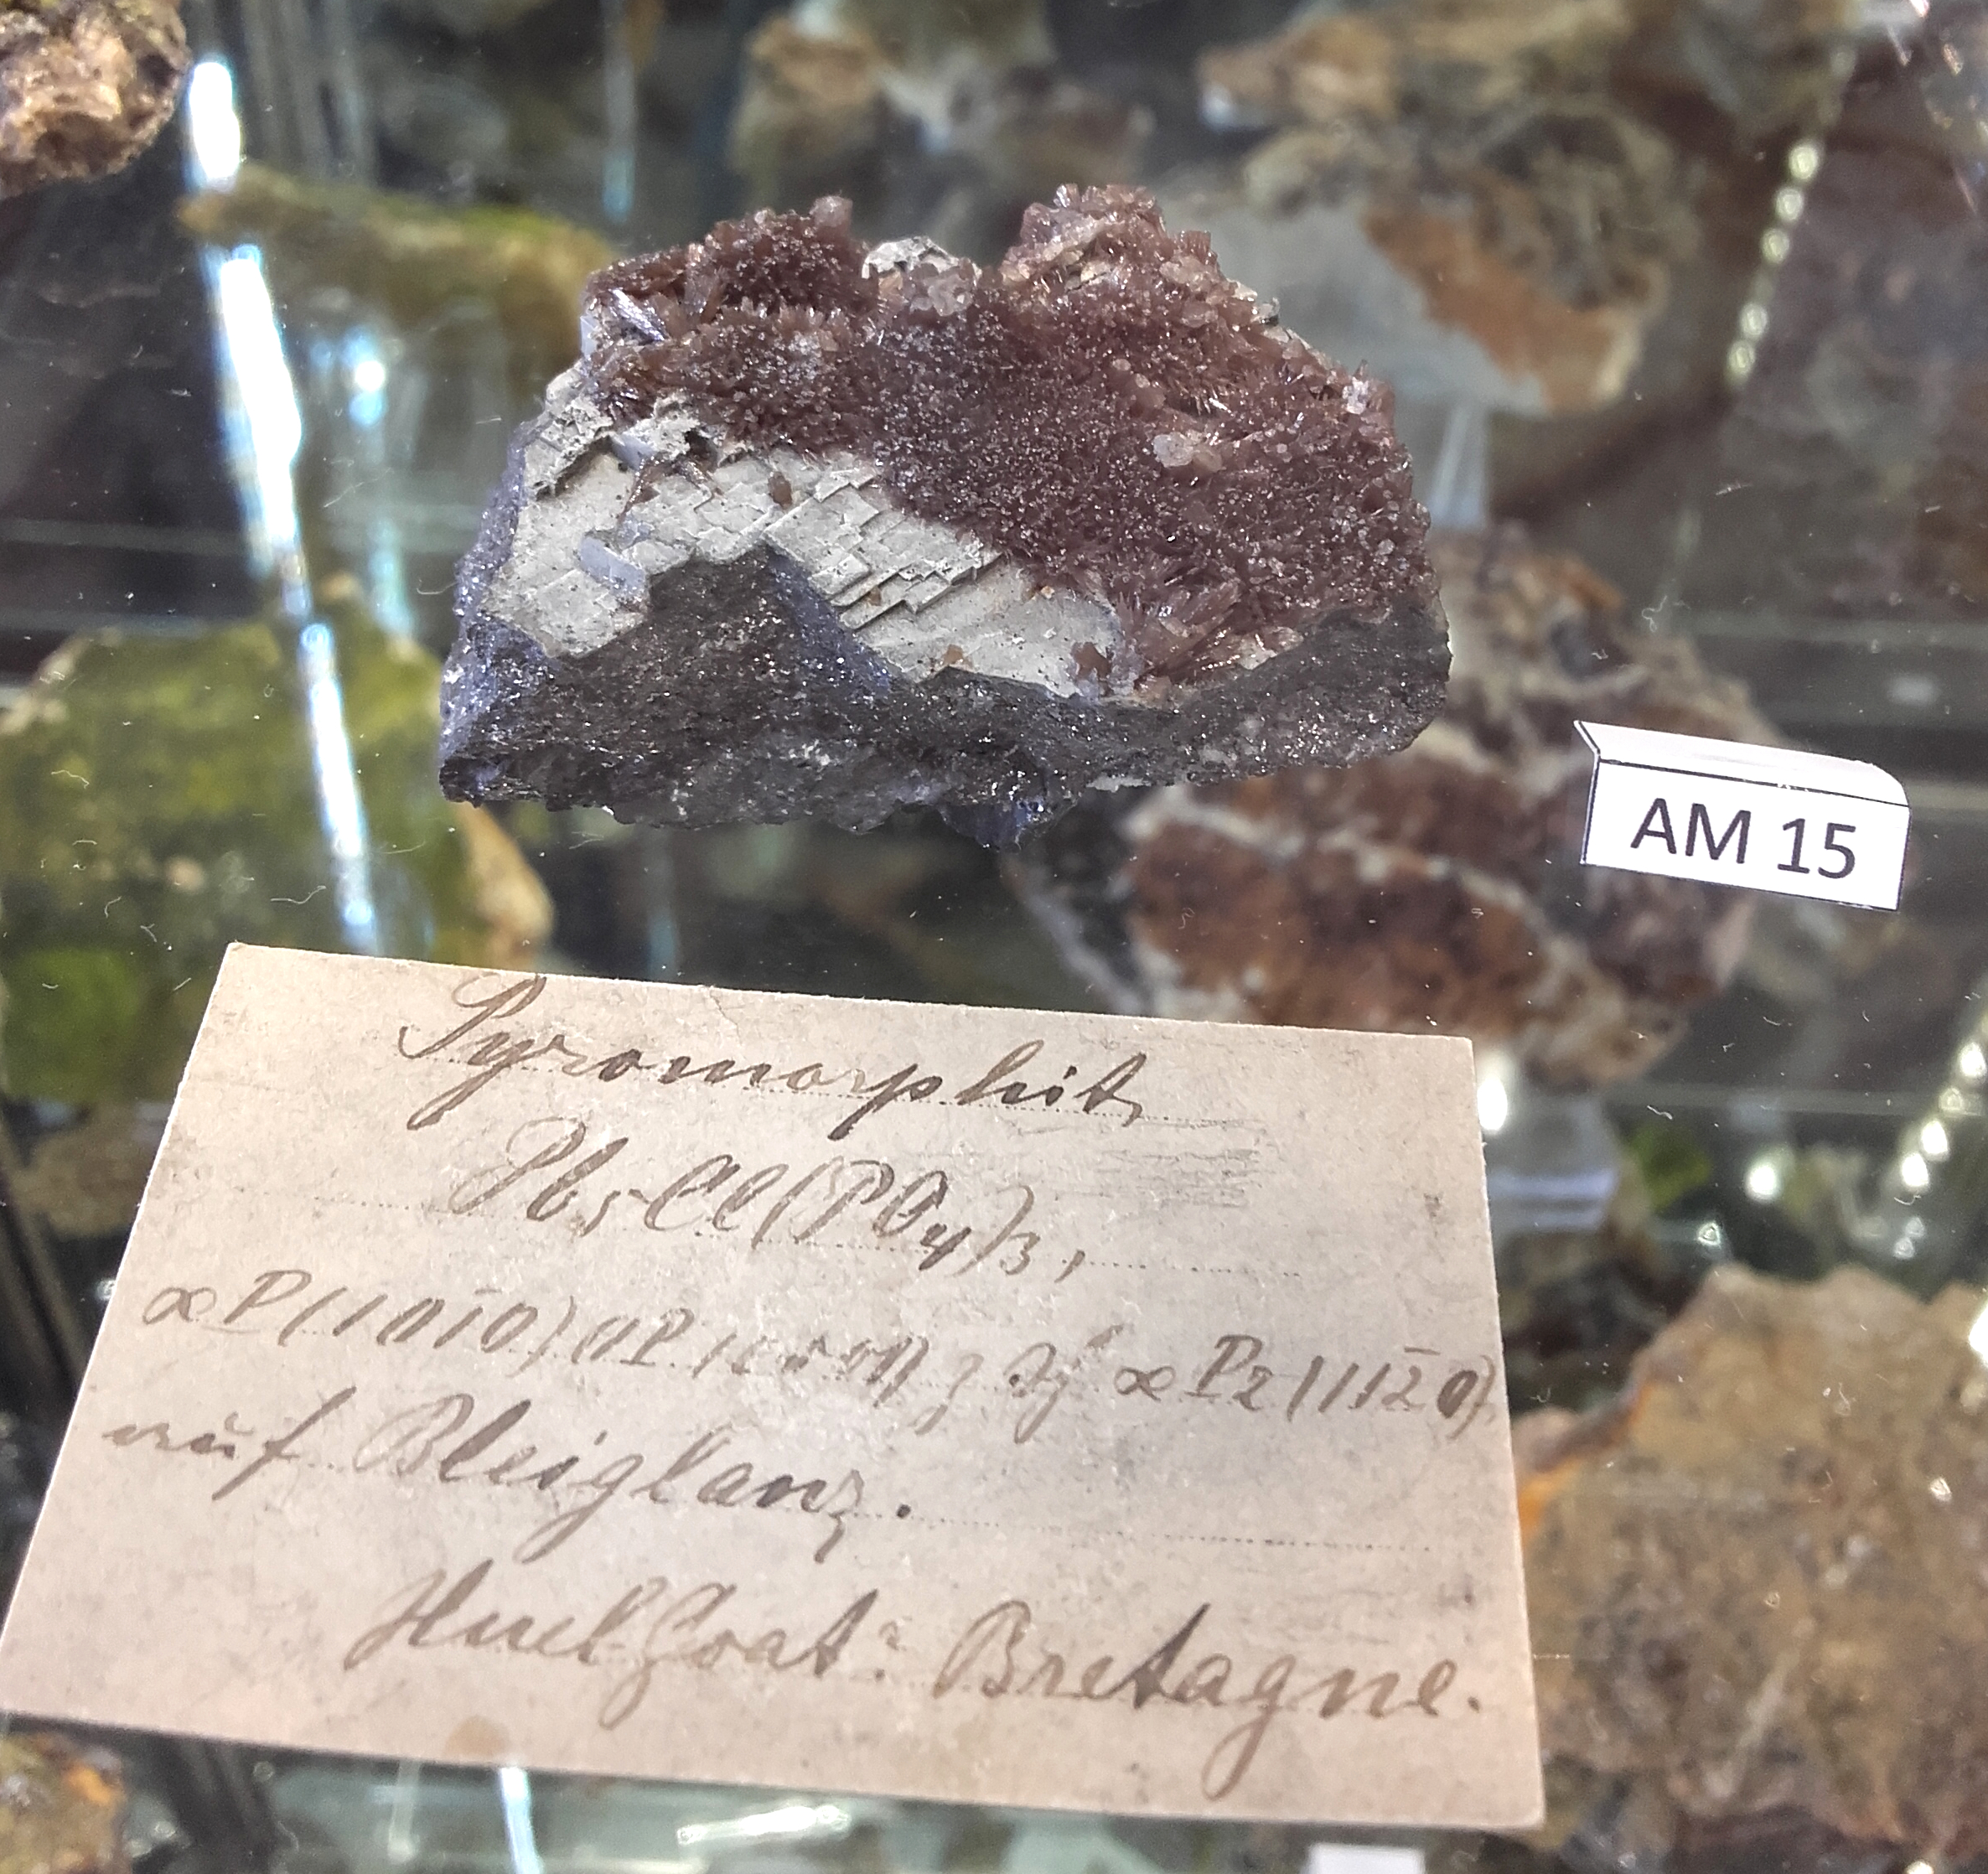 AM 15
Pyromorphit,
Pb₅Cl(PO₄)₃,
∞P(101̄0) 0P(0001), ∞P2(112̄0)
auf Bleiglanz.
Huelgoat: Bretagne.